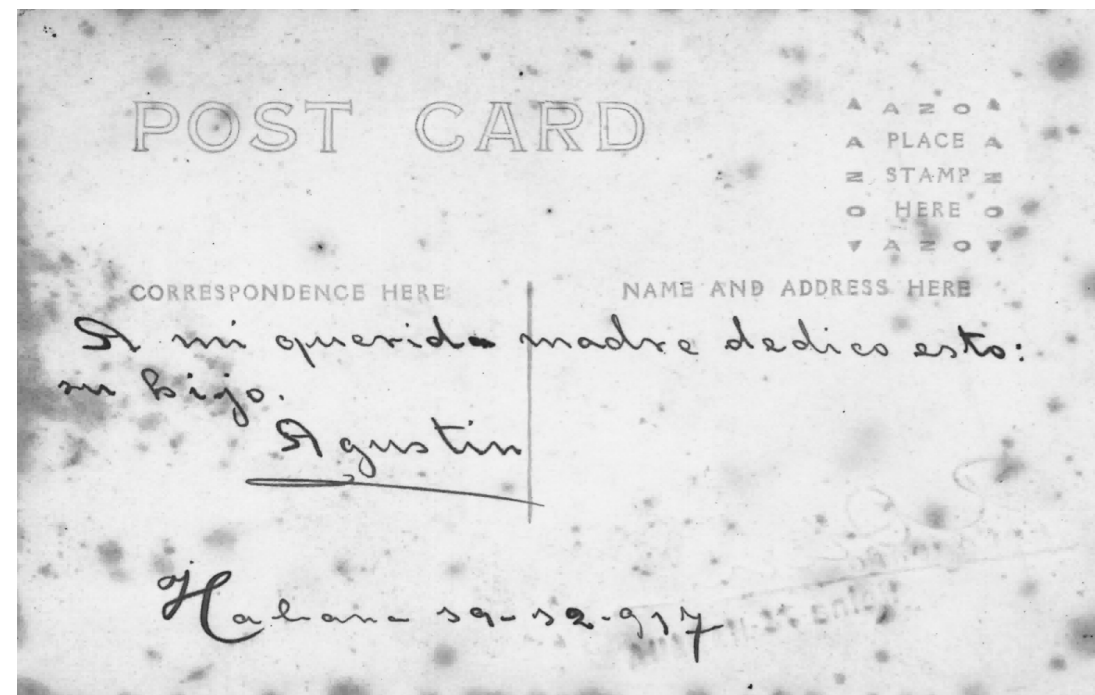 POST CARD
AZO
A PLACE A
Z STAMP Z
O HERE O
AZO
CORRESPONDENCE HERE
NAME AND ADDRESS HERE
A mi querida madre dedico esto:
su hijo.
Agustin
Habana 19-12-917